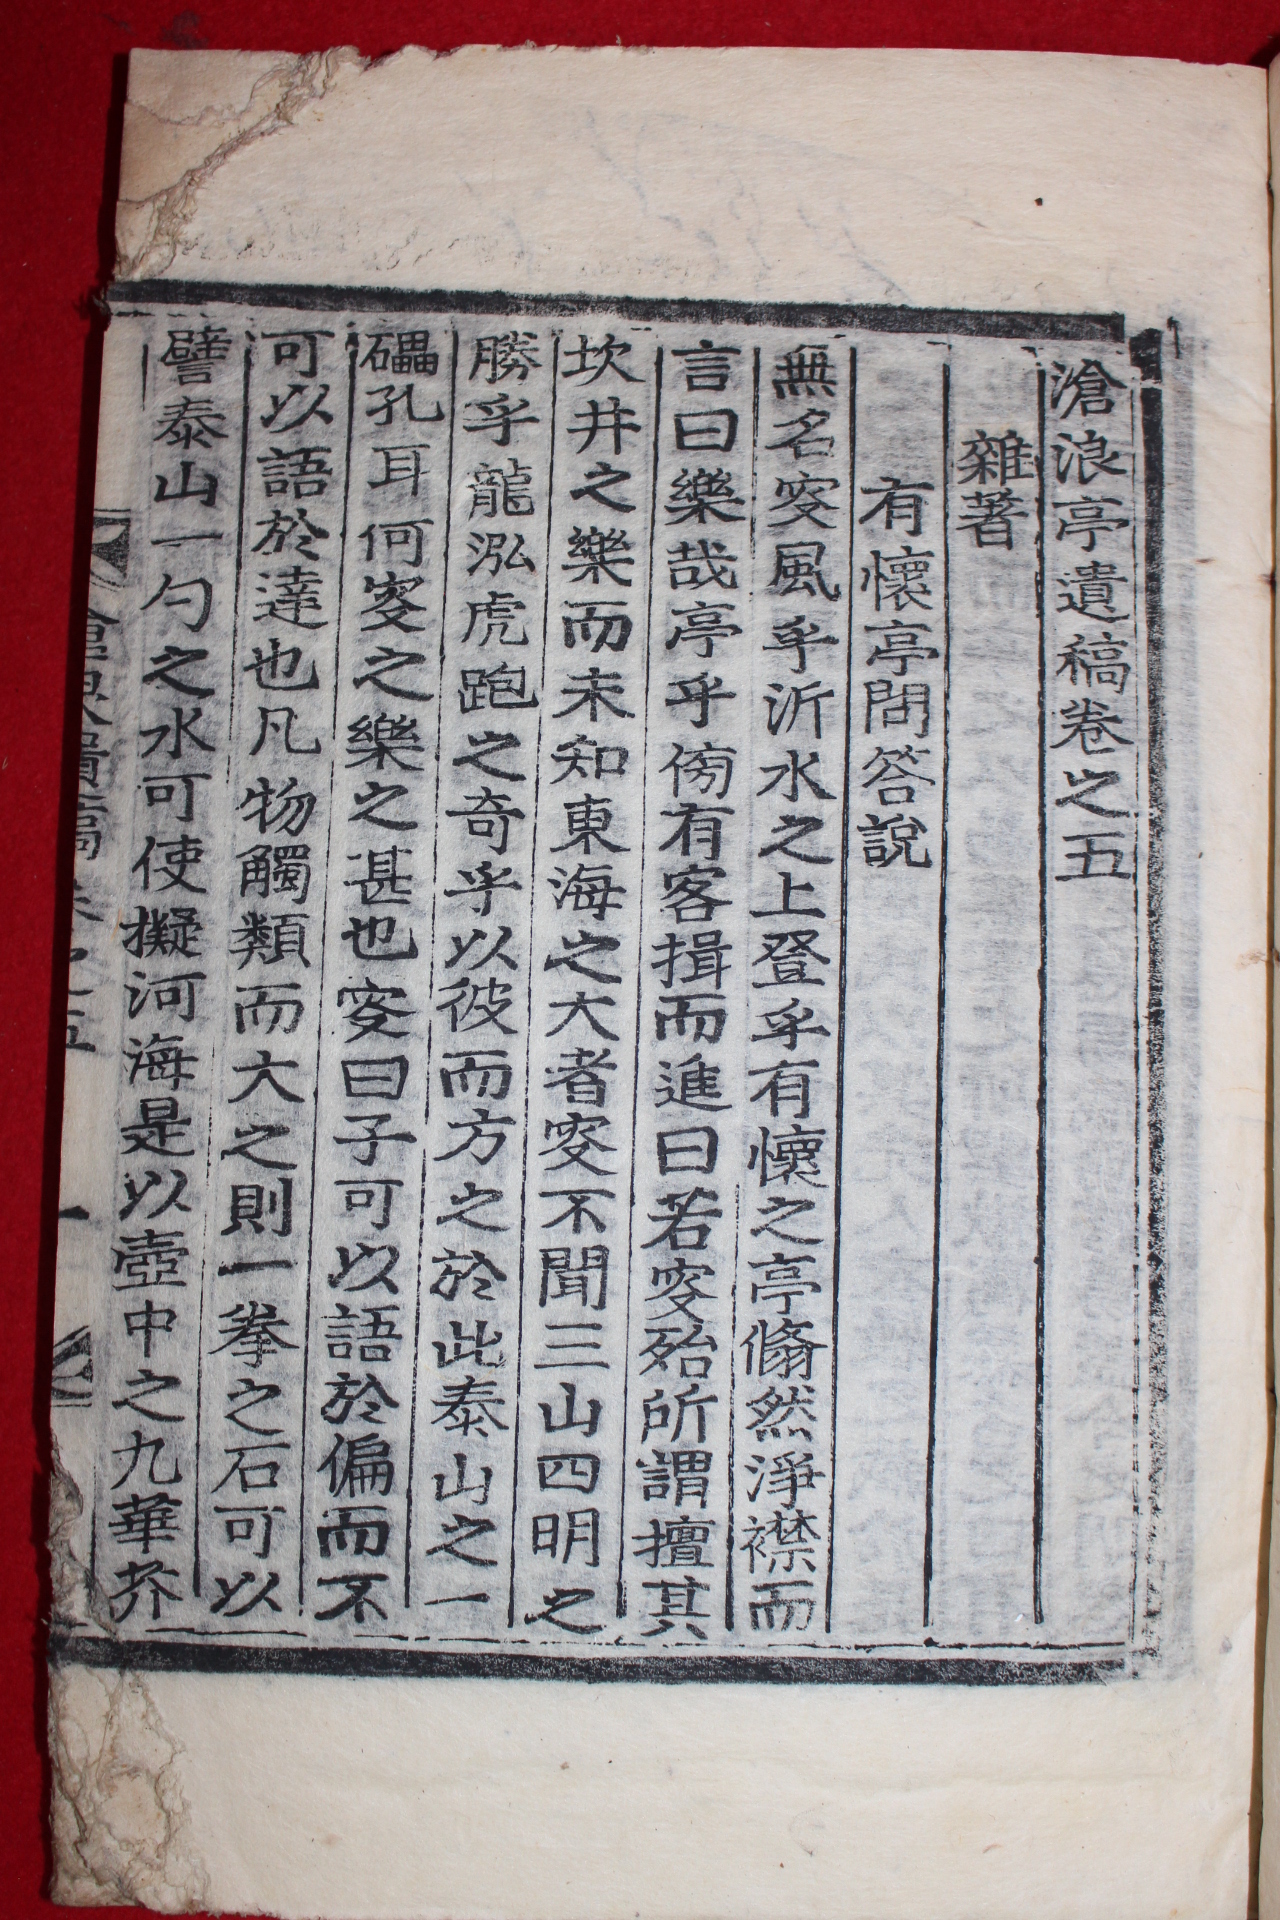 滄浪亭遺稿卷之五
雜著
有懷亭問答說
無名叜風乎沂水之上登乎有懷之亭翛然淨襟而
言曰樂哉亭乎傍有客揖而進曰若叜殆所謂擅其
坎井之樂而未知東海之大者叜不聞三山四明之
勝乎龍泓虎跑之奇乎以彼而方之於此泰山之一
礧孔耳何叜之樂之甚也叜曰子可以語於偏而不
可以語於達也凡物觸類而大之則一拳之石可以
譬泰山一勺之水可使擬河海是以壺中之九華芥